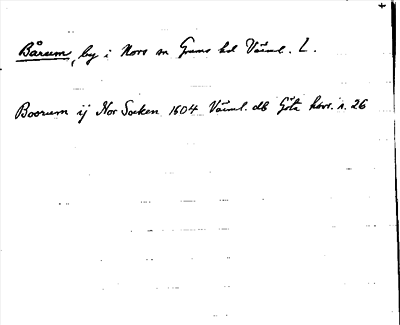 Bårum, by i Nors sn Grums hd Värml. L.
Boorum ij Nor Socken 1604 Värml. db Göta hovr. n. 26